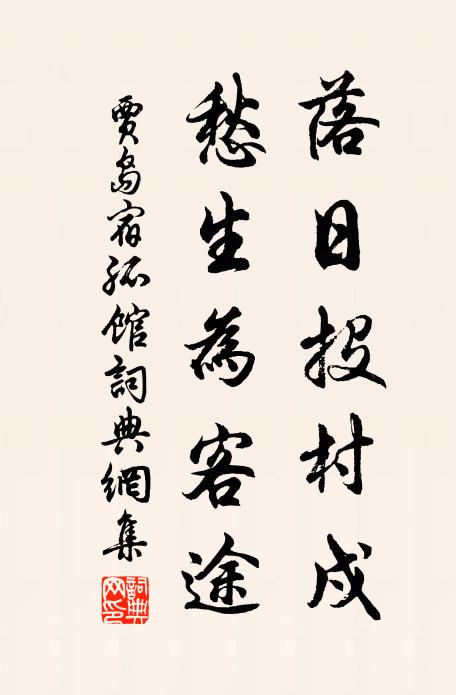 落日投村戍
愁生為客途
賈島宿孤館詞典網集
詞典網印